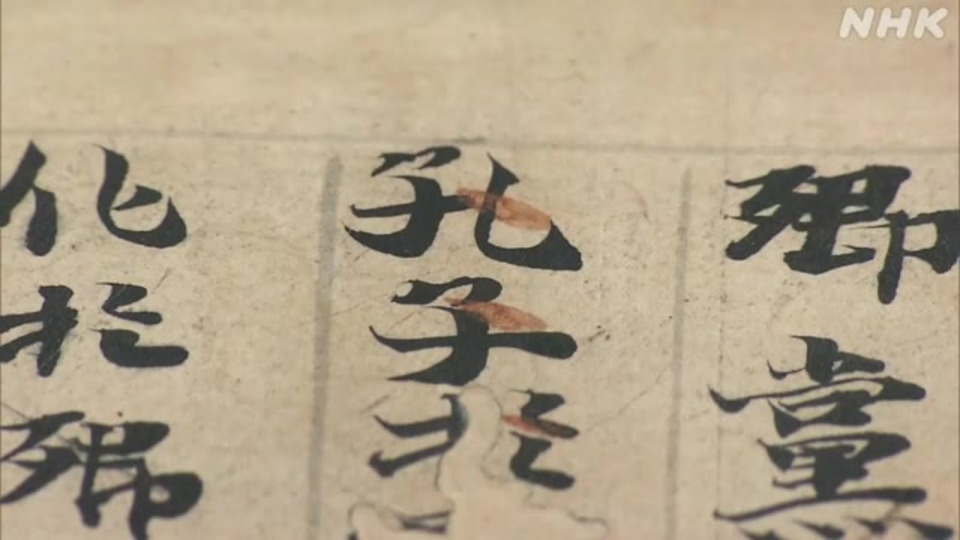 NHK
鄉黨
孔子於
化於鄉